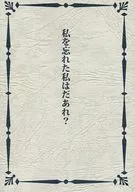 私を忘れた私はだあれ？